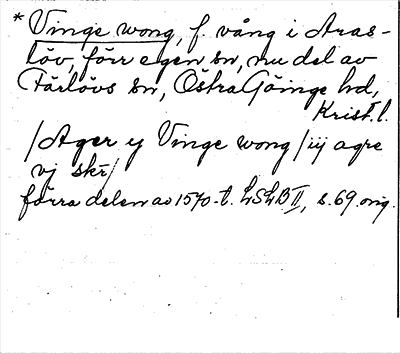 * Vinge wong, f. vång i Aras-
löv, förr egen sn, nu del av
Färlövs sn, Östra Göinge hd,
Krist. l.
/Ager ij Vinge wong/iij agre
vj skr/
förra delen av 1570-t. LSLB II, s. 69. orig.